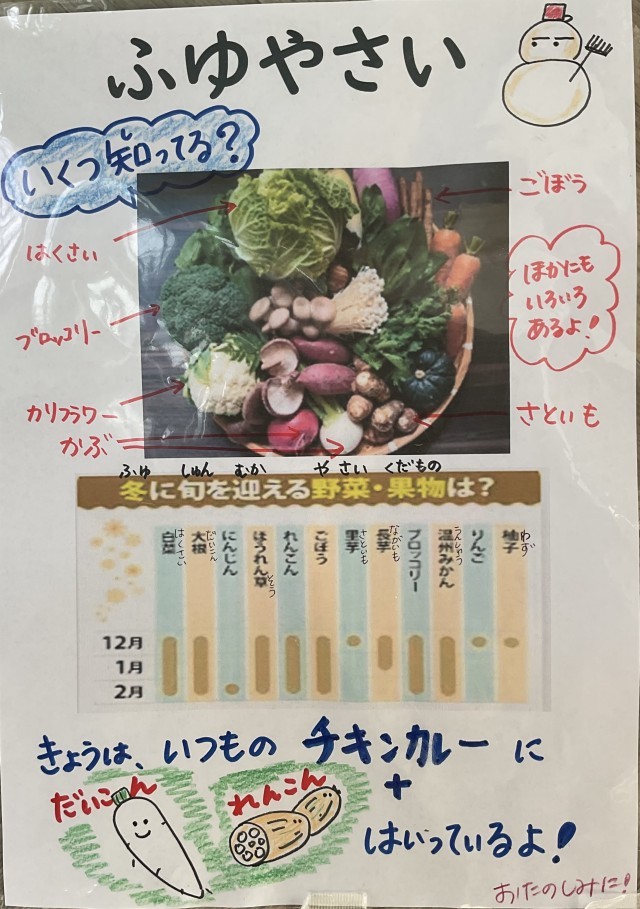 ふゆやさい
いくつ知ってる？
はくさい
ブロッコリー
カリフラワー
かぶ
ごぼう
ほかにも
いろいろ
あるよ！
さといも
ふゆ しゅん むか やさい くだもの
冬に旬を迎える野菜・果物は？
白菜 はくさい
大根 だいこん
にんじん
ほうれん草 そう
れんこん
ごぼう
里芋 さといも
長芋 ながいも
ブロッコリー
温州みかん うんしゅう
りんご
柚子 ゆず
12月
1月
2月
きょうは、いつもの チキンカレー に
+
だいこん
れんこん
はいっているよ！
おたのしみに！